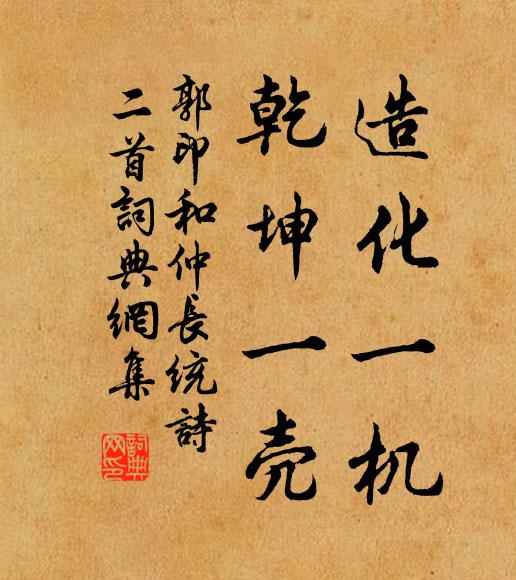 造化一机
乾坤一壳
郭印和仲長统詩
二首詞典網集
詞典
网印